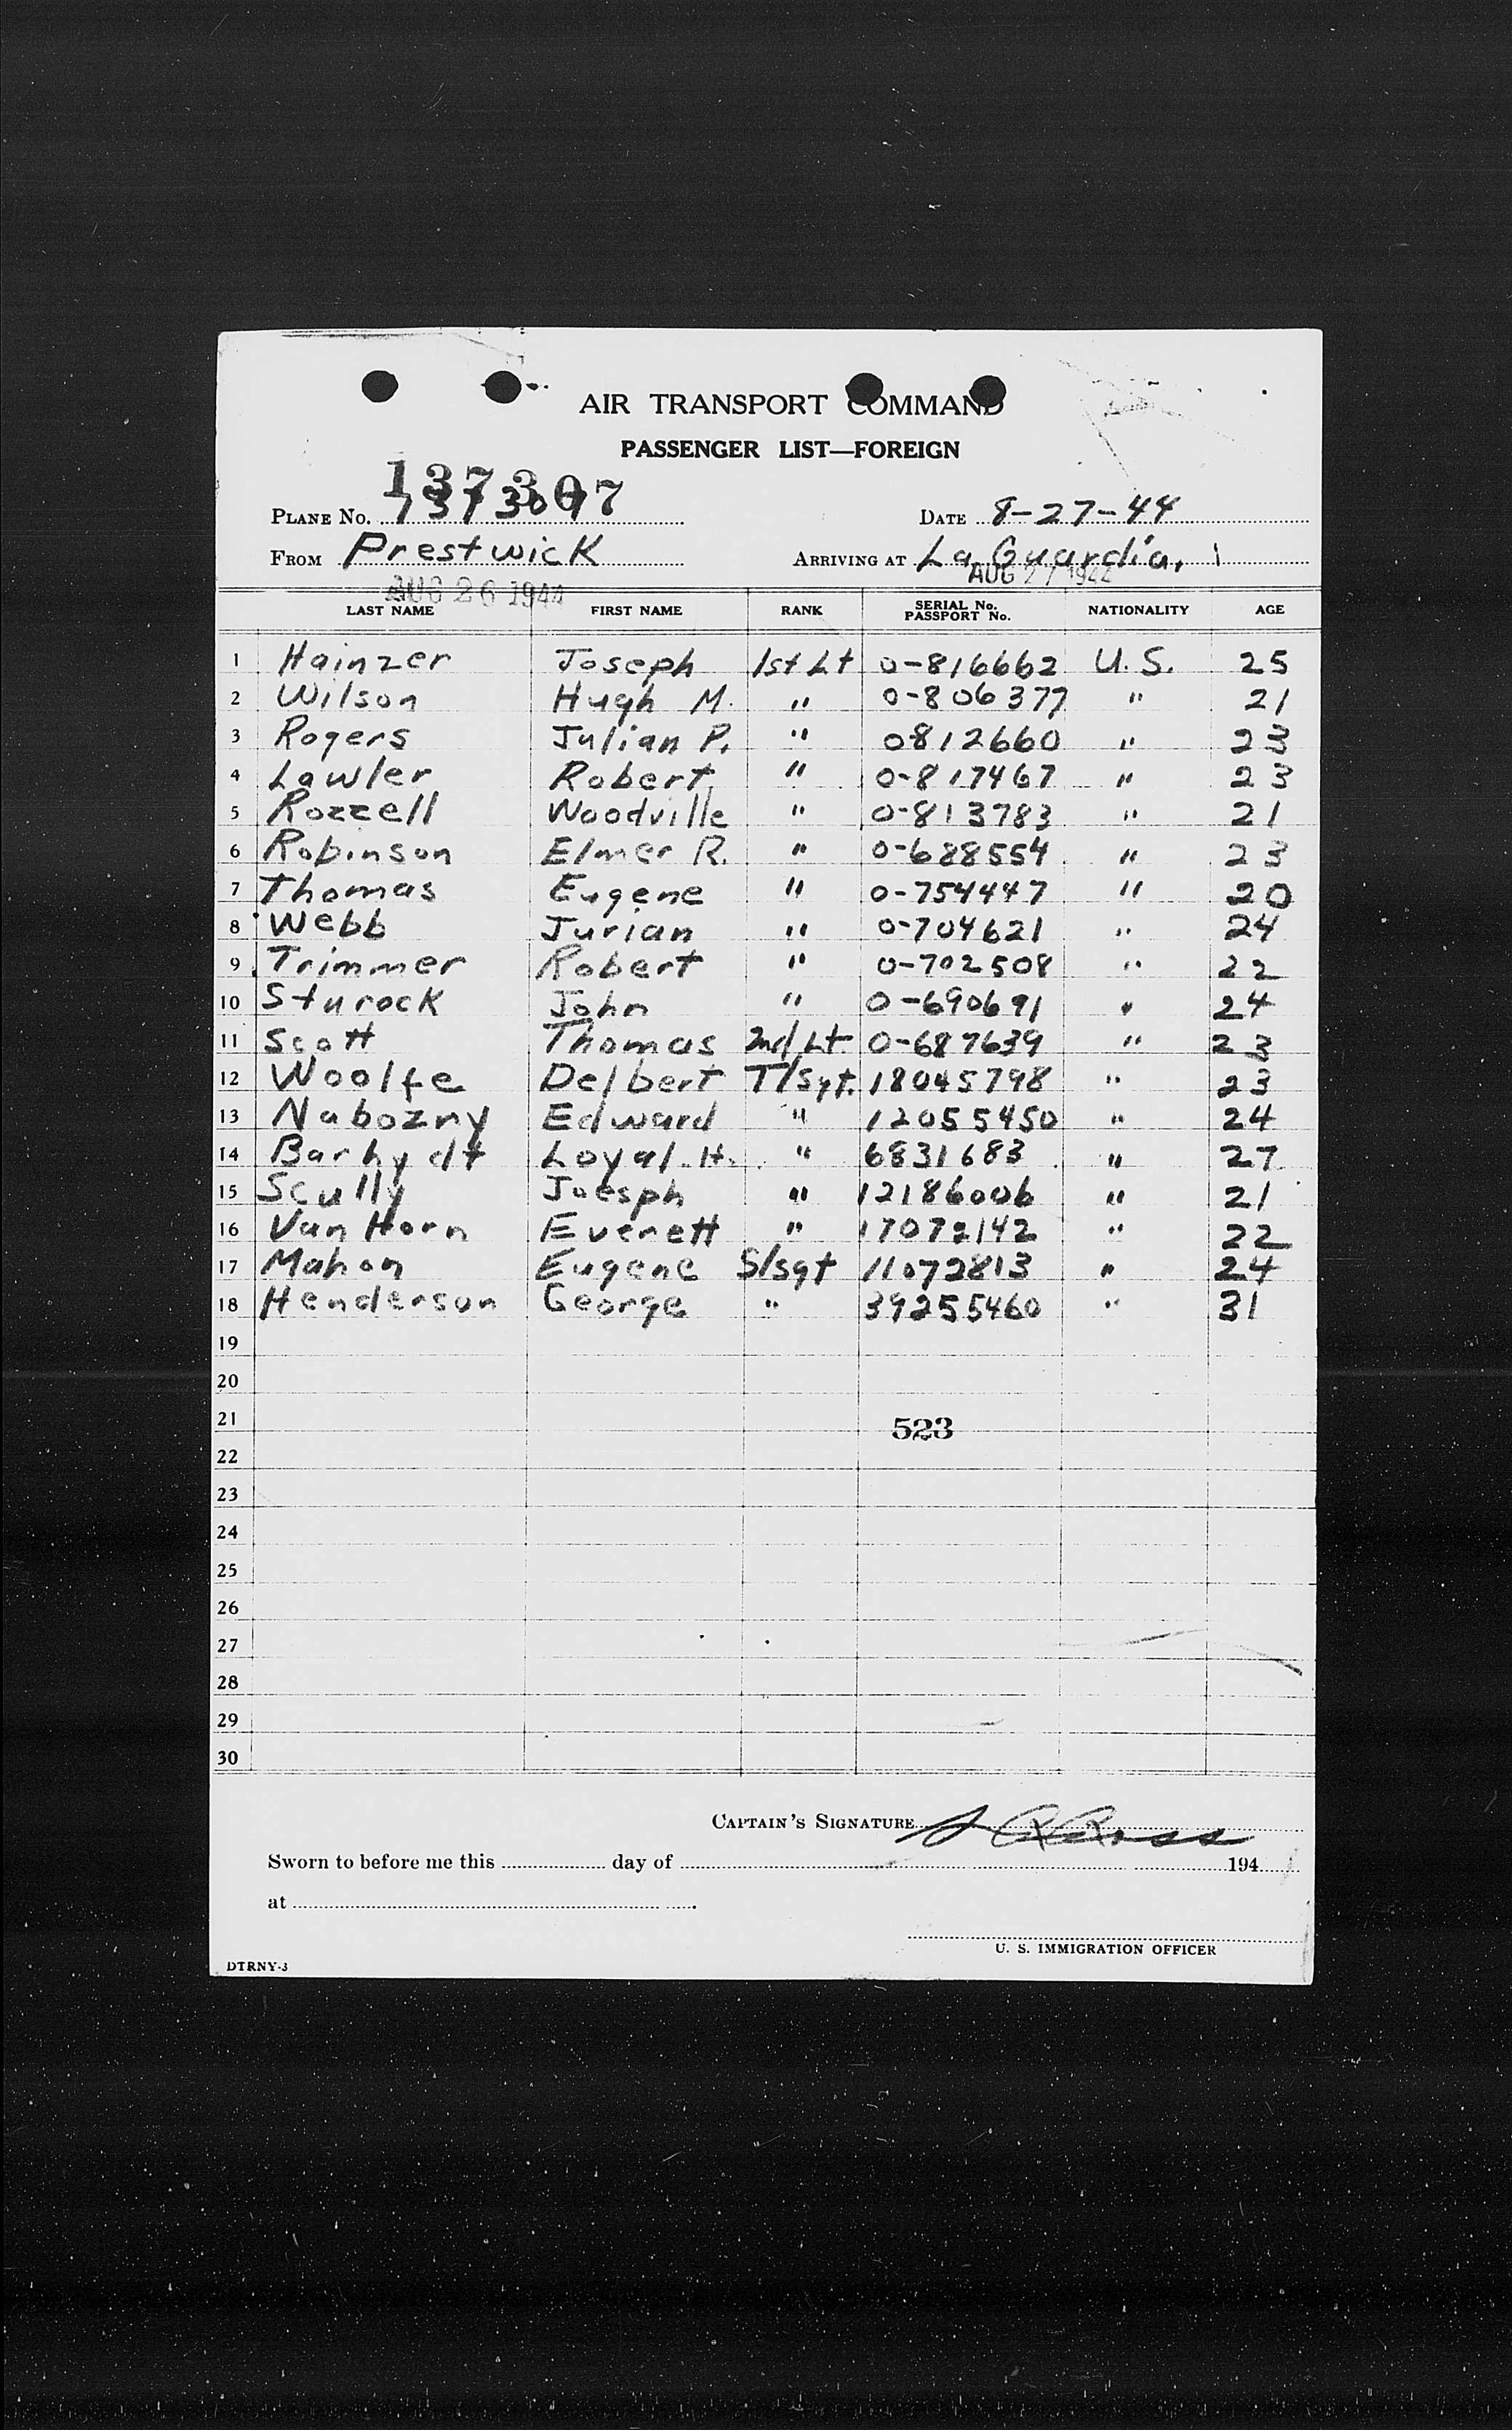 AIR TRANSPORT COMMAND
PASSENGER LIST—FOREIGN
137307
PLANE No. 137307 DATE 8-27-44
FROM Prestwick ARRIVING AT La Guardia,
AUG 26 1944 AUG 27 1944
LAST NAME FIRST NAME RANK SERIAL No. PASSPORT No. NATIONALITY AGE
1 Hainzer Joseph 1st Lt 0-816662 U.S. 25
2 Wilson Hugh M. " 0-806377 " 21
3 Rogers Julian P. " 0812660 " 23
4 Lawler Robert " 0-817467 " 23
5 Rozzell Woodville " 0-813783 " 21
6 Robinson Elmer R. " 0-688554 " 23
7 Thomas Eugene " 0-754447 " 20
8 Webb Jurian " 0-704621 " 24
9 Trimmer Robert " 0-702508 " 22
10 Sturock John " 0-690691 " 24
11 Scott Thomas 2nd Lt. 0-687639 " 23
12 Woolfe Delbert T/Sgt. 18045798 " 23
13 Nabozny Edward " 12055450 " 24
14 Barhydt Loyal H. " 6831683 " 27
15 Scully Joesph " 12186006 " 21
16 Van Horn Everett " 17072142 " 22
17 Mahon Eugene S/sgt 11072813 " 24
18 Henderson George " 39255460 " 31
19
20
21 523
22
23
24
25
26
27
28
29
30
CAPTAIN'S SIGNATURE Ross
Sworn to before me this day of 194
at
U. S. IMMIGRATION OFFICER
DTRNY-3